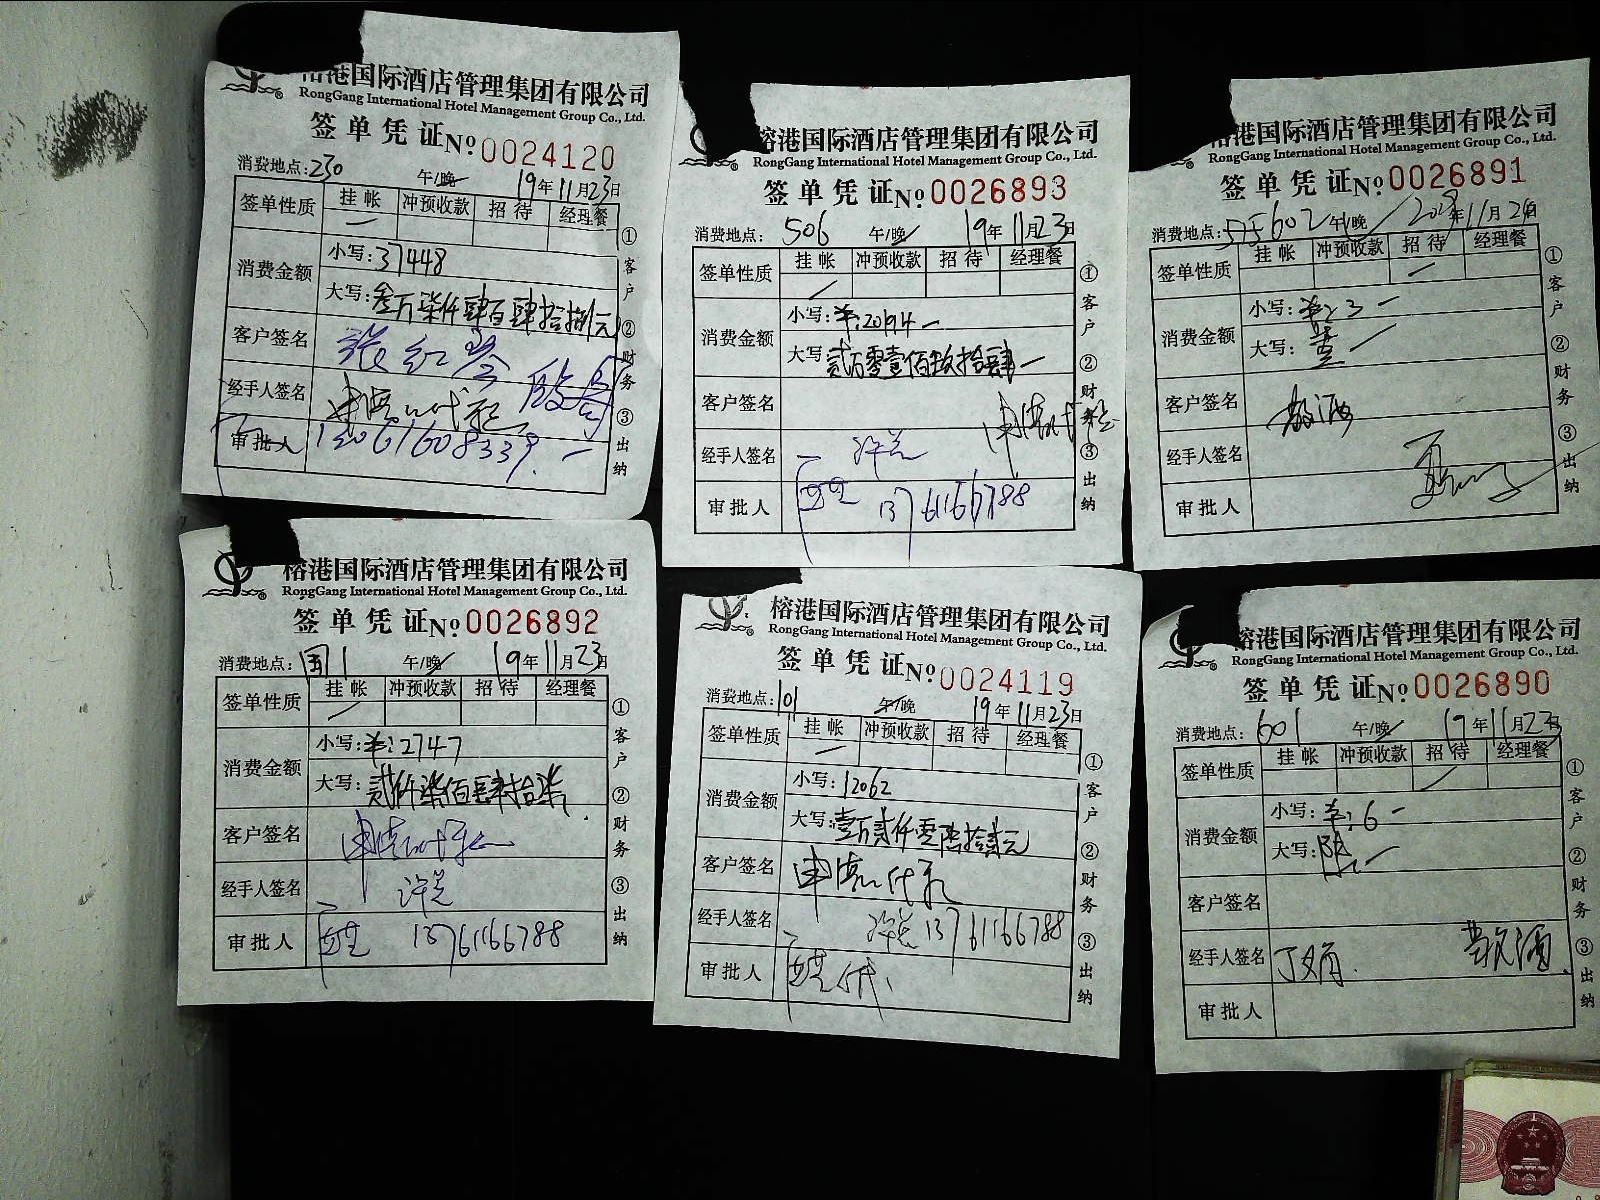 港国际酒店管理集团有限公司
RongGang International Hotel Management Group Co., Ltd.
签单凭证 No 0024120
消费地点:230 午/晚 19年11月23日
签单性质 挂帐 冲预收款 招待 经理餐
消费金额 小写:37448
大写:叁万柒仟肆百肆拾捌元
客户签名 张红
经手人签名
审批人
①客户 ②财务 ③出纳
榕港国际酒店管理集团有限公司
RongGang International Hotel Management Group Co., Ltd.
签单凭证 No 0026893
消费地点: 506 午/晚 19年11月23日
签单性质 挂帐 冲预收款 招待 经理餐
消费金额 小写:¥:20194
大写:贰万零壹佰玖拾肆
客户签名
经手人签名
审批人 13761166788
①客户 ②财务 ③出纳
港国际酒店管理集团有限公司
RongGang International Hotel Management Group Co., Ltd.
签单凭证 No 0026891
消费地点: 602 午/晚 年11月2 日
签单性质 挂帐 冲预收款 招待 经理餐
消费金额 小写:
大写:
客户签名 敬酒
经手人签名
审批人
①客户 ②财务 ③出纳
榕港国际酒店管理集团有限公司
RongGang International Hotel Management Group Co., Ltd.
签单凭证 No 0026892
消费地点:国1 午/晚 19年11月23日
签单性质 挂帐 冲预收款 招待 经理餐
消费金额 小写:¥:2747
大写:贰仟柒佰肆拾柒
客户签名
经手人签名
审批人 13761166788
①客户 ②财务 ③出纳
榕港国际酒店管理集团有限公司
RongGang International Hotel Management Group Co., Ltd.
签单凭证 No 0024119
消费地点:101 午/晚 19年11月23日
签单性质 挂帐 冲预收款 招待 经理餐
消费金额 小写:12062
大写:壹万贰仟零陆拾贰元
客户签名
经手人签名 13761166788
审批人
①客户 ②财务 ③出纳
榕港国际酒店管理集团有限公司
RongGang International Hotel Management Group Co., Ltd.
签单凭证 No 0026890
消费地点: 601 午/晚 19年11月23日
签单性质 挂帐 冲预收款 招待 经理餐
消费金额 小写:¥:6
大写:陆
客户签名
经手人签名 敬酒
审批人
①客户 ②财务 ③出纳